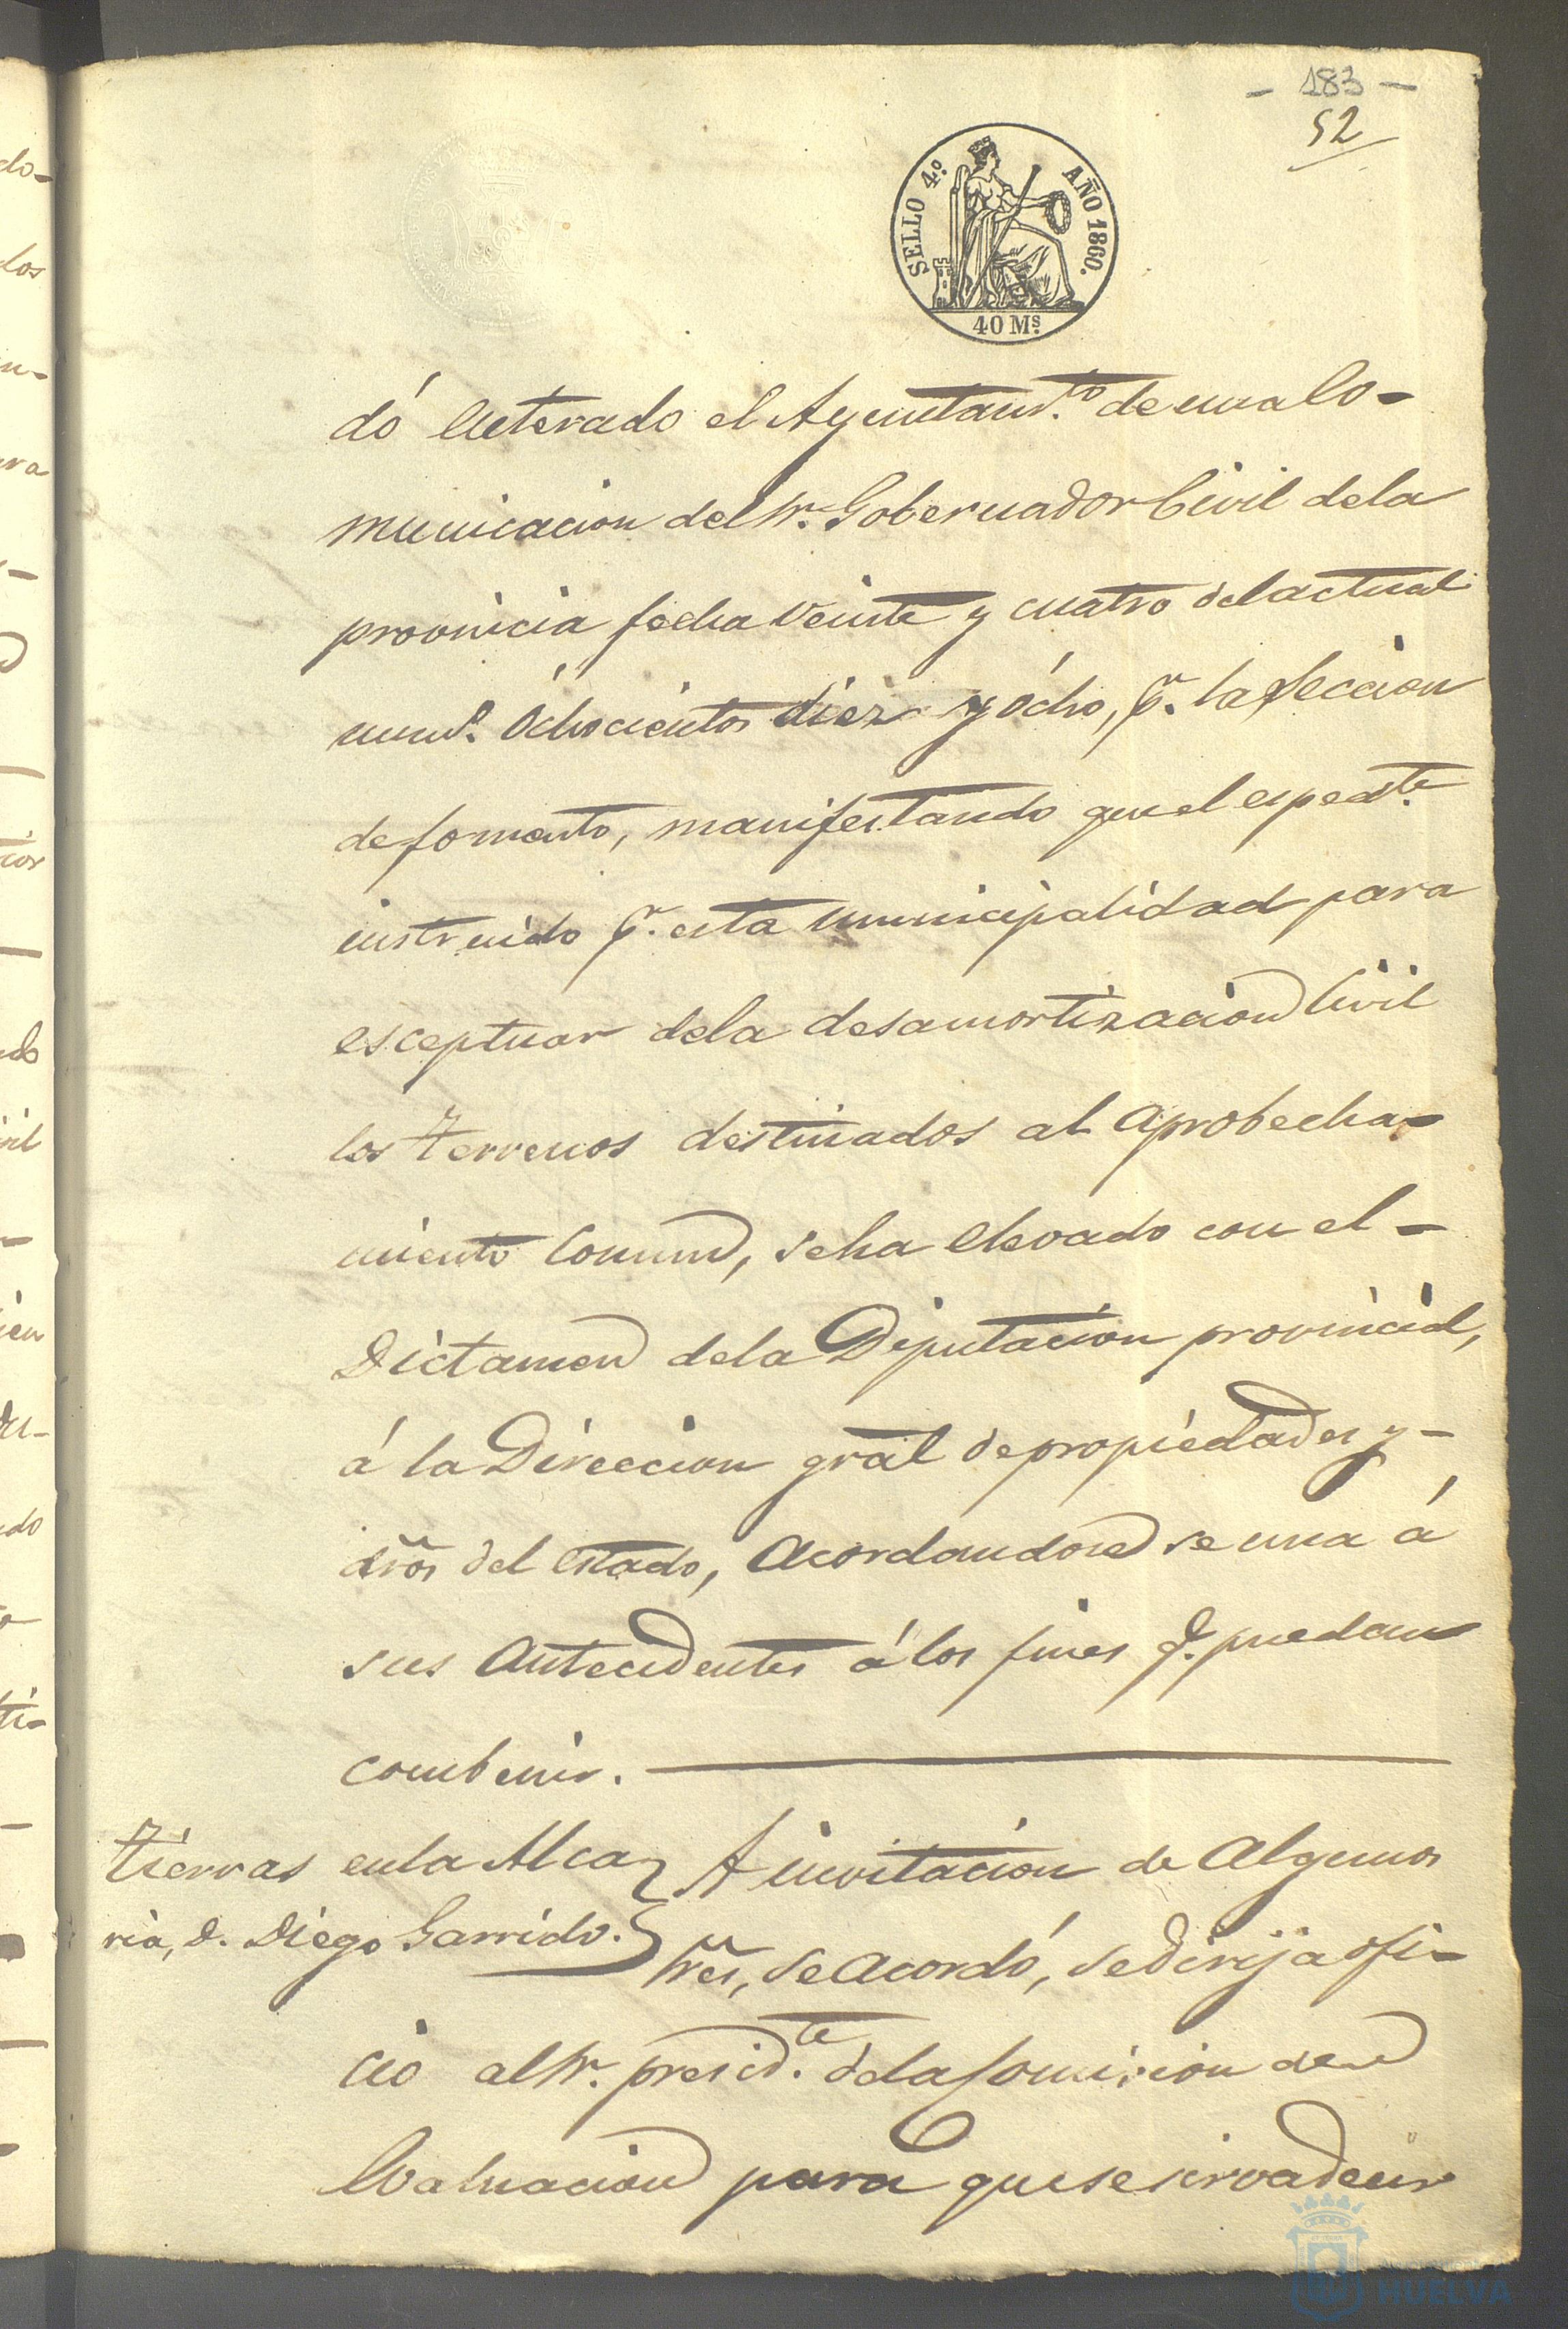 - 183 -
52
SELLO 4.º AÑO 1860.
40 Ms.
dó enterado el Ayuntam.to de una Co-
municacion del Sr. Gobernador Civil dela
provinicia fecha veinte y cuatro del actual
num.º Óchocientos diez y ócho, p.r la Seccion
de fomento, manifestando que el esped.te
instruido p.r esta municipalidad para
esceptuar dela desamortizacion Civil
los terrenos destinados al aprobecha-
miento Comun, seha elevado con el -
Dictamen dela Diputacion provincial,
á la Direccion gral de propiedades y -
dr̃os del estado, Acordandose se una á
sus Antecedentes á los fines q.e puedan
combenir.
tierras enla Alca
ria, d. Diego Garrido.
A invitacion de Algunos
Sres, se Acordó, se dirija ofi-
cio al Sr. presid.te dela Comision de
Evaluacion para que se sirva decir
HUELVA